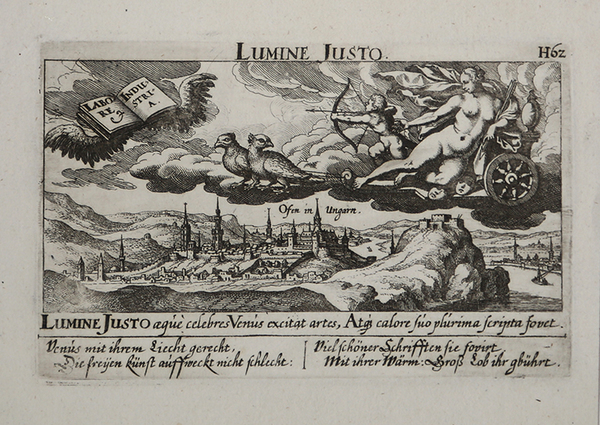 LUMINE JUSTO.
H62
LABO RE &
INDUSTRIA.
Ofen in Ungarn.
LUMINE JUSTO æquè celebres Venus excitat artes, Atq; calore suo plurima scripta fovet.
Venus mit ihrem Liecht gerecht,
Die freijen künst auffweckt nicht schlecht:
Viel schöner Schrifften sie fovirt
Mit ihrer Wärm: Groß Lob ihr gbührt.